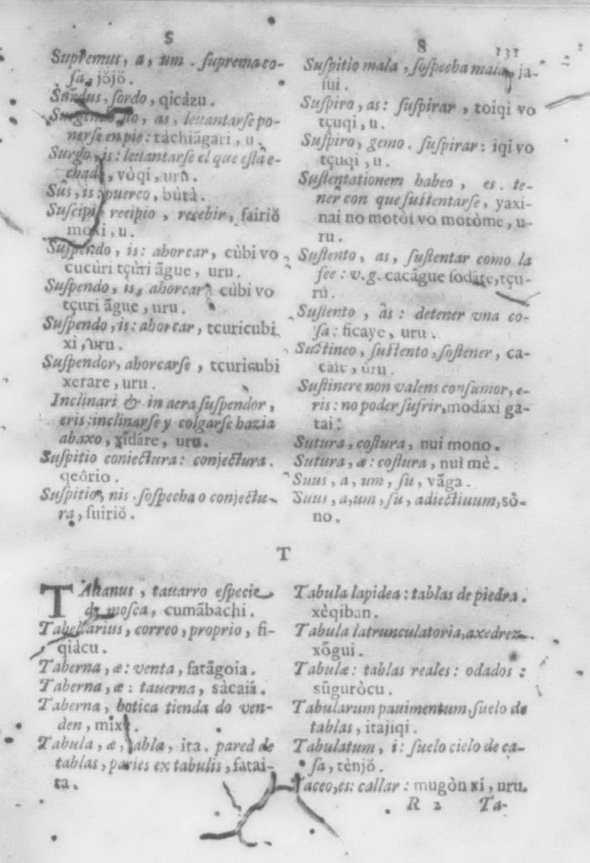 S
Supremus, a, um. suprema co-
sa, jŏjŏ.
Surdus, sordo, qicázu.
as, leuantarse po-
nerse en pie: tàchiãgari, u.
Surgo, is: leuantarse el que està e-
chado, vòqi, uru.
Sûs, is: puerco, bùtà.
Suscipio recipio, recebir, sairiŏ
moxi, u.
Suspendo, is: ahorcar, cùbi vo
cucùri tçùri ãgue, uru.
Suspendo, is, ahorcar, cùbi vo
tçuri ãgue, uru.
Suspendo, is: ahorcar, tcuricubi
xi, uru.
Suspendor, ahorcarse, tcuricubi
xerare, uru.
Inclinari & in aera suspendor,
eris: inclinarse y colgarse hazia
abaxo, xĩdáre, uru.
Suspitio coniectura: conjectura.
qeôrio.
Suspitio, nis. sospecha o conjectu-
ra, suiriŏ.
8 131
Suspitio mala, sospecha mala, ja-
sui.
Suspiro, as: suspirar, toiqi vo
tçuqi, u.
Suspiro, gemo. suspirar: iqi vo
tçuqi, u.
Sustentationem habeo, es. te-
ner con que sustentarse, yaxi-
nai no motòi vo motòme, u-
ru.
Sustento, as, sustentar como la
fee: v.g. cacãgue sodáte, tçu-
rù.
Sustento, âs: detener vna co-
sa: ficaye, uru.
Sustineo, sustento, sostener, ca-
caie, uru.
Sustinere non valens consumor, e-
ris: no poder sufrir, modáxi ga-
tai:
Sutura, costura, nui mono.
Sutura, æ: costura, nui mè.
Suus, a, um, su, vãga.
Suus, a, um, su, adiectiuum, sŏ-
no.
T
TAbanus, tauarro especie
de mosca, cumãbachi.
Tabellarius, correo, proprio, fi-
qiácu.
Taberna, æ: venta, fatãgoia.
Taberna, æ: tauerna, sàcaiá.
Taberna, botica tienda do ven-
den, mixe.
Tabula, æ, tabla, ita. pared de
tablas, paries ex tabulis, fatai-
ta.
Tabula lapidea: tablas de piedra.
xèqiban.
Tabula latrunculatoria, axedrez.
xõgui.
Tabulæ: tablas reales: o dados:
sũguròcu.
Tabularum pauimentum, suelo de
tablas, itajiqi.
Tabulatum, i: suelo cielo de ca-
sa, tènjŏ.
Taceo, es: callar: mugòn xi, uru.
R 2 Ta-